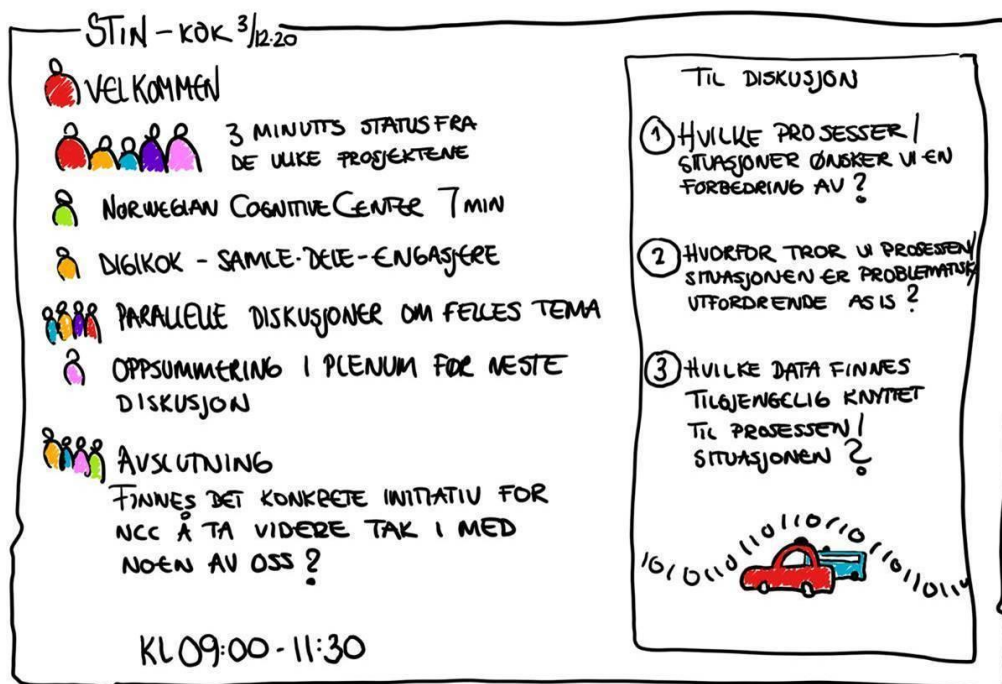 STIN - KOK 3/12.20
VELKOMMEN
3 MINUTTS STATUS FRA
DE ULIKE PROSJEKTENE
NORWEGIAN COGNITIVE CENTER 7 MIN
DIGIKOK - SAMLE-DELE-ENGASJERE
PARALLELLE DISKUSJONER OM FELLES TEMA
OPPSUMMERING I PLENUM FØR NESTE
DISKUSJON
AVSLUTNING
FINNES DET KONKRETE INITIATIV FOR
NCC Å TA VIDERE TAK I MED
NOEN AV OSS?
KL 09:00-11:30
TIL DISKUSJON
1 HVILKE PROSESSER/
SITUASJONER ØNSKER VI EN
FORBEDRING AV?
2 HVORFOR TROR VI PROSESSEN/
SITUASJONEN ER PROBLEMATISK/
UTFORDRENDE AS IS?
3 HVILKE DATA FINNES
TILGJENGELIG KNYTTET
TIL PROSESSEN/
SITUASJONEN?